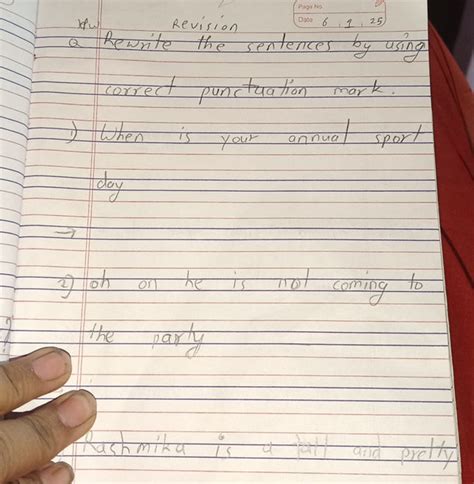 Page No.
H/W Revision Date 6 . 1 . 25
Q Rewrite the sentences by using
correct punctuation mark.
1) When is your annual sport
day
→
2) oh on he is not coming to
the party
Rashmika is a tall and pretty